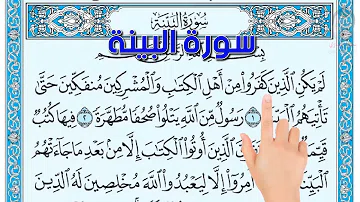 سُورَةُ البَيِّنَةِ
سورة البينة
لَمْ يَكُنِ الَّذِينَ كَفَرُوا مِنْ أَهْلِ الْكِتَابِ وَالْمُشْرِكِينَ مُنفَكِّينَ حَتَّى
تَأْتِيَهُمُ ١ رَسُولٌ مِّنَ اللَّهِ يَتْلُوا صُحُفًا مُّطَهَّرَةً ٢ فِيهَا كُتُبٌ
الَّذِينَ أُوتُوا الْكِتَابَ إِلَّا مِنْ بَعْدِ مَا جَاءَتْهُمُ
أُمِرُوا إِلَّا لِيَعْبُدُوا اللَّهَ مُخْلِصِينَ لَهُ الدِّينَ